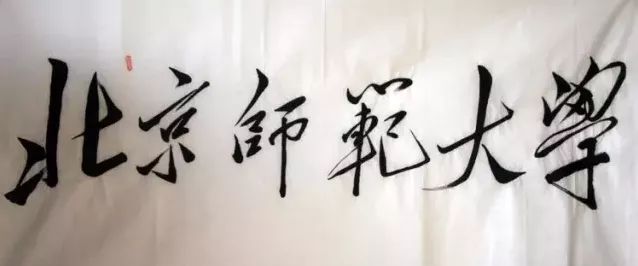 北京師範大學